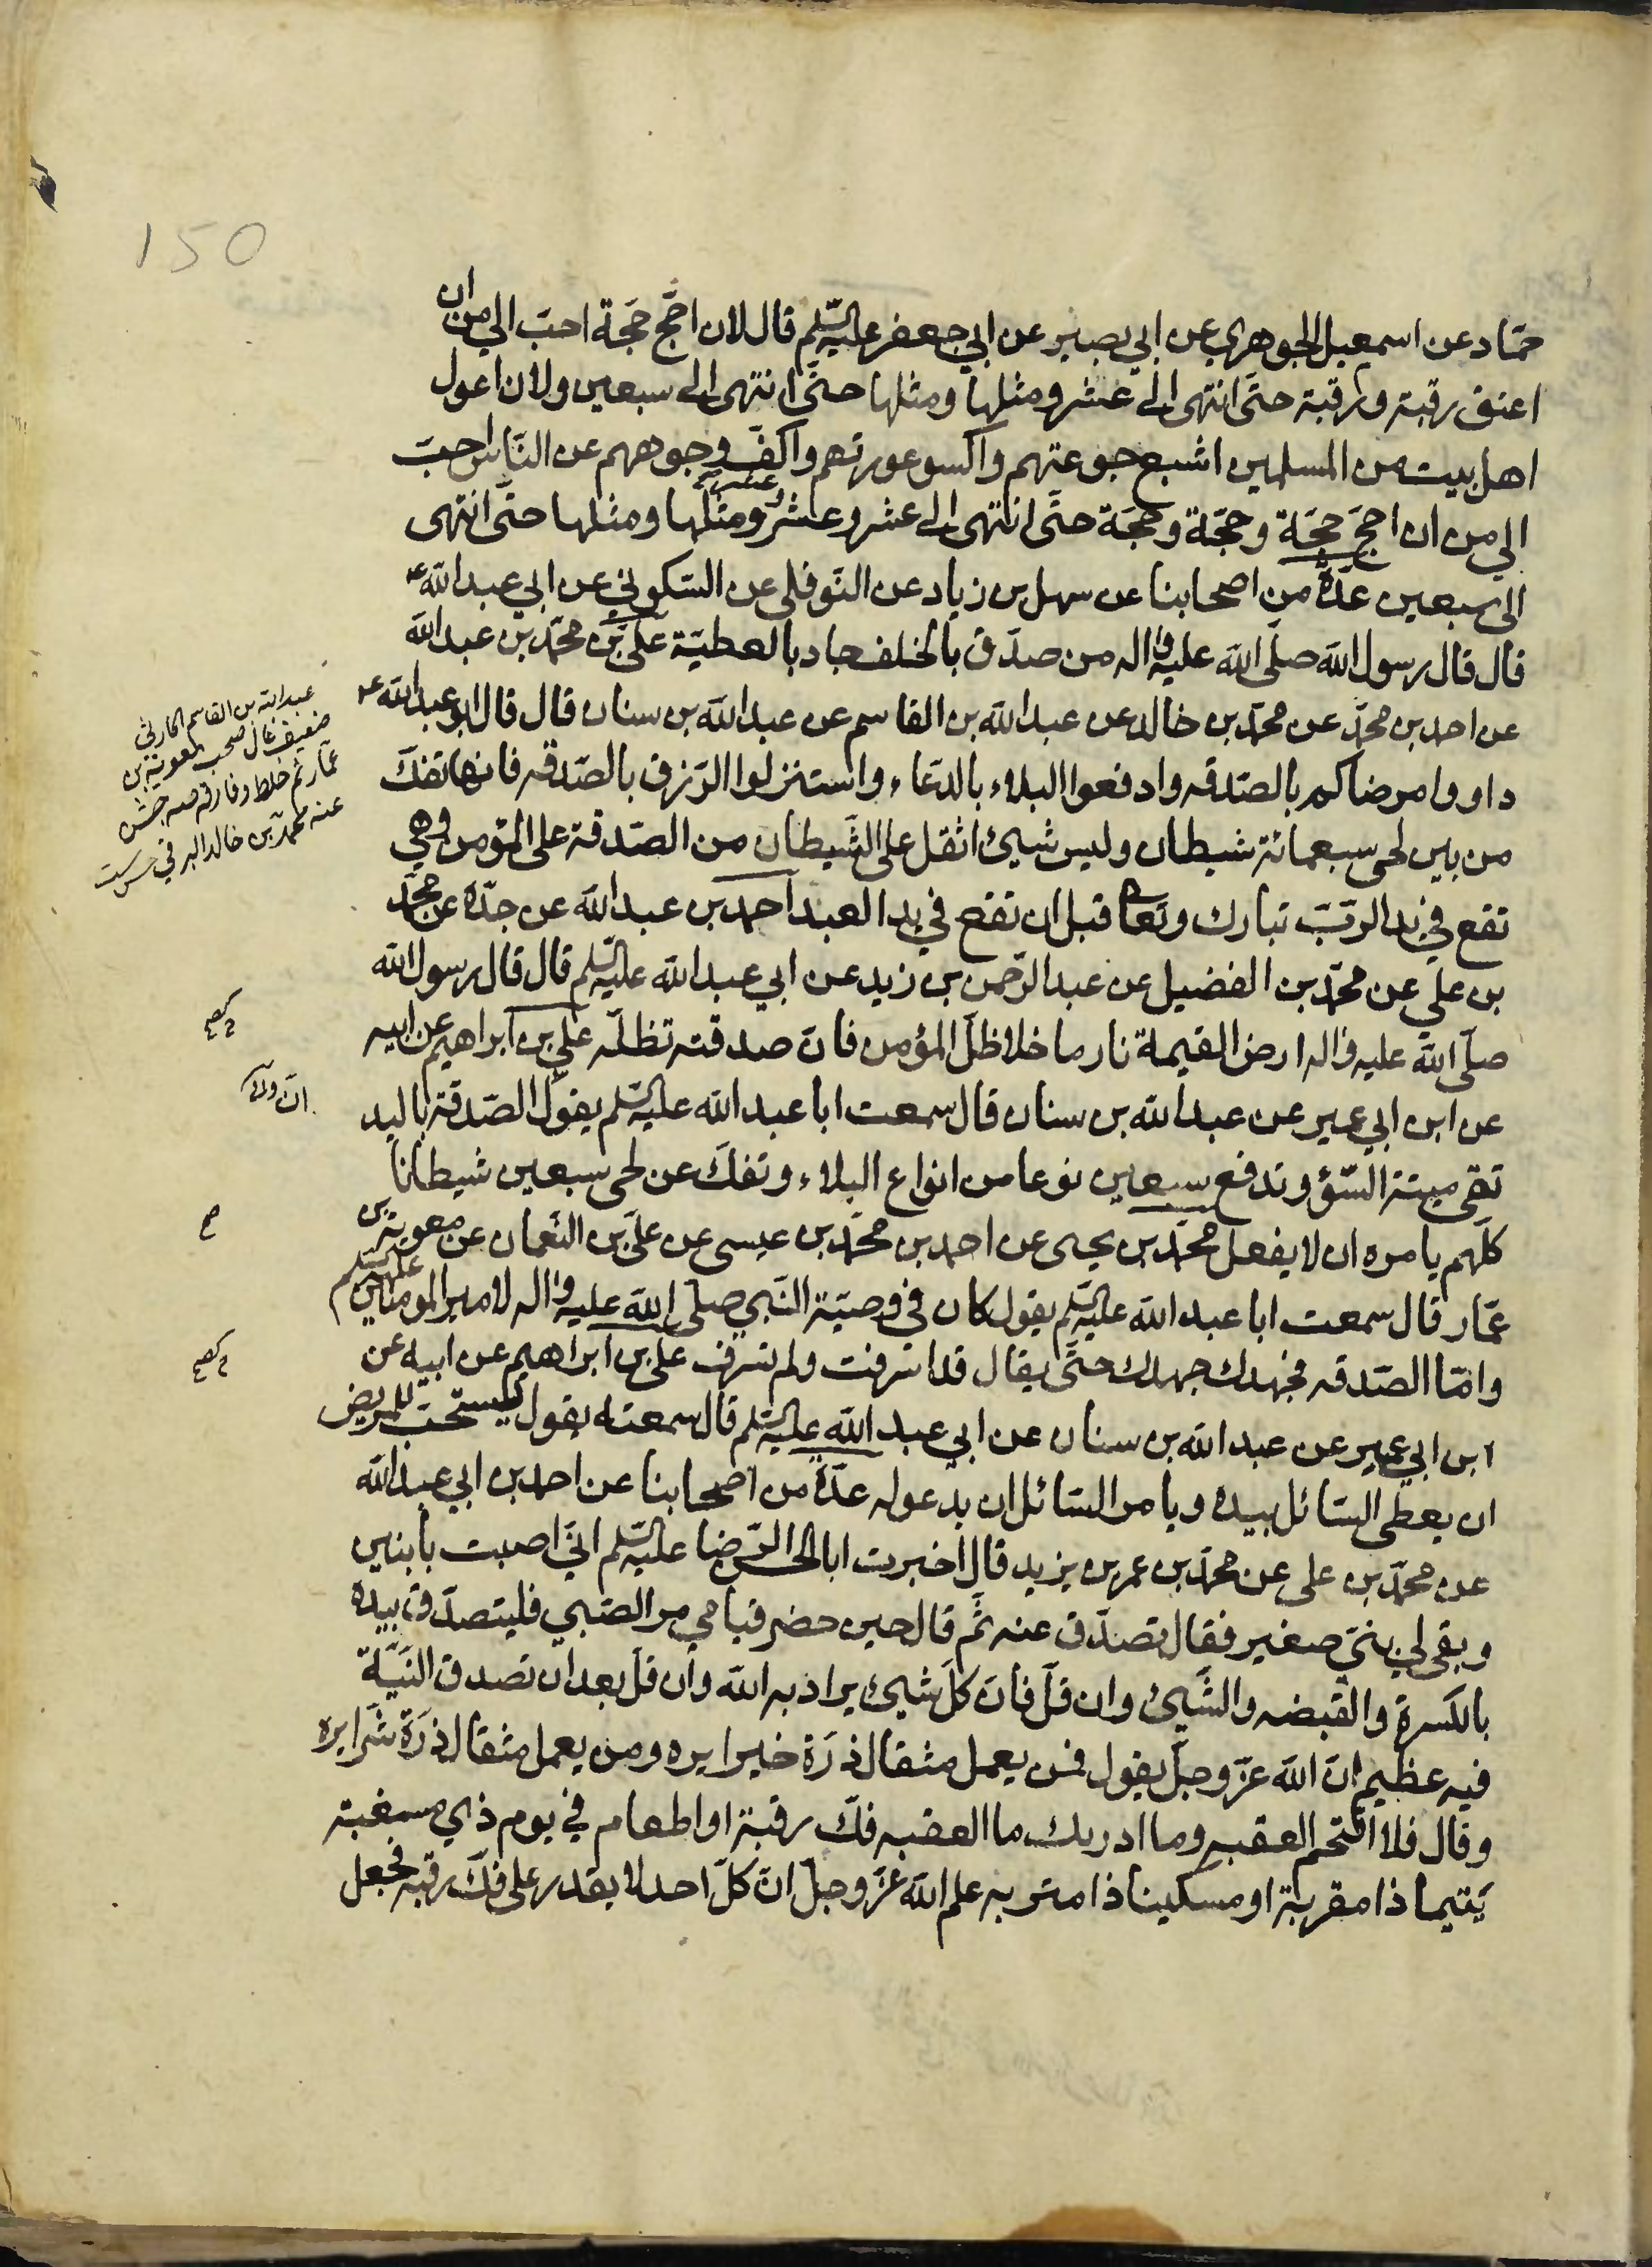 150
حمّاد عن اسمعيل الجوهري عن ابي بصير عن ابي جعفر عليه السّلم قال لان احجّ حجّة احبّ الي من ان
اعتق رقبة ورقبة حتّى انتهى الى عشر ومثلها ومثلها حتّى انتهى الى سبعين ولان اعول
اهل بيت من المسلمين اشبع جوعتهم واكسو عورتهم واكفّ وجوههم عن النّاس احبّ
الي من ان احجّ حجّة وحجّة وحجّة حتّى انتهى الى عشر وعشر ومثلها ومثلها حتّى انتهى
الى سبعين عدّة من اصحابنا عن سهل بن زياد عن النّوفلى عن السّكوني عن ابي عبد الله ع
قال قال رسول الله صلّى الله عليه واله من صدّق بالخلف جاد بالعطيّة علي بن محمّد بن عبد الله
عن احمد بن محمّد عن محمّد بن خالد عن عبد الله بن القاسم عن عبد الله بن سنان قال قال ابو عبد الله ع
داووا مرضاكم بالصّدقه وادفعوا البلاء بالدّعاء واستنزلوا الرّزق بالصّدقه فانها تفكّ
من بين لحى سبعمائة شيطان وليس شيئ اثقل على الشّيطان من الصّدقة على المؤمن وهي
تقع في يد الرّبّ تبارك وتعا قبل ان تقع في يد العبد احمد بن عبد الله عن جدّه عن محمّد
بن علي عن محمّد بن الفضيل عن عبد الرّحمن بن زيد عن ابي عبد الله عليه السّلم قال قال رسول الله
صلّى الله عليه واله ارض القيمة نار ما خلا ظلّ المؤمن فانّ صدقته تظلّه علي بن ابراهيم عن ابيه
عن ابن ابي عمير عن عبد الله بن سنان قال سمعت ابا عبد الله عليه السّلم يقول الصّدقة باليد
تقي ميتة السّؤ وتدفع سبعين نوعا من انواع البلاء وتفكّ عن لحى سبعين شيطانا
كلّهم يامره ان لا يفعل محمّد بن يحيى عن احمد بن محمّد بن عيسى عن علي بن النّعمان عن معوية بن
عمّار قال سمعت ابا عبد الله عليه السّلم يقول كان في وصيّة النّبي صلّى الله عليه واله لامير المومنين عليه السلم
وامّا الصّدقه فجهدك جهدك حتّى يقال قد اسرفت ولم تسرف علي بن ابراهيم عن ابيه عن
ابن ابي عمير عن عبد الله بن سنان عن ابي عبد الله عليه السّلم قال سمعته يقول يستحبّ للمريض
ان يعطى السّائل بيده ويامر السّائل ان يدعو له عدّة من اصحابنا عن احمد بن ابي عبد الله
عن محمّد بن على عن محمّد بن عمر بن يزيد قال اخبرت ابا الحسن الرّضا عليه السّلم انّي اصبت بابنين
وبقى لي بنيّ صغير فقال تصدّق عنه ثمّ قال حين حضر قيامي مر الصّبي فليتصدّق بيده
بالكسرة والقبضه والشّيئ وان قلّ فانّ كلّ شيئ يراد به الله وان قلّ بعد ان تصدق النّيّة
فيه عظيم انّ الله عزّ وجلّ يقول فمن يعمل مثقال ذرّة خيرا يره ومن يعمل مثقال ذرّة شرّا يره
وقال فلا اقتحم العقبه وما ادريك ما العقبه فكّ رقبة او اطعام في يوم ذي مسغبة
يتيما ذا مقربة او مسكينا ذا متربه علم الله عزّ وجلّ انّ كلّ احد لا يقدر على فكّ رقبه فجعل
عبد الله بن القاسم الحارثي
ضعيف غال صحب معوية بن
عمّار ثم خلط وفارقه
عنه محمد بن خالد البرقي